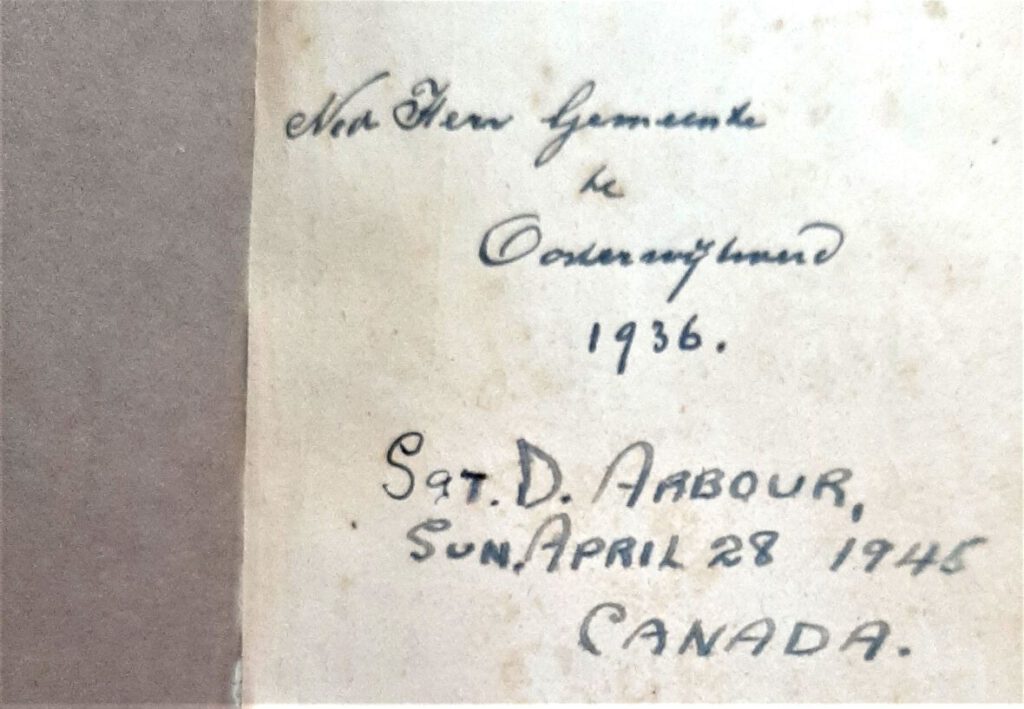 Ned Herv Gemeente
te
Oosterwijtwerd
1936.
Sgt. D. ARBOUR,
SUN. APRIL 28 1945
CANADA.